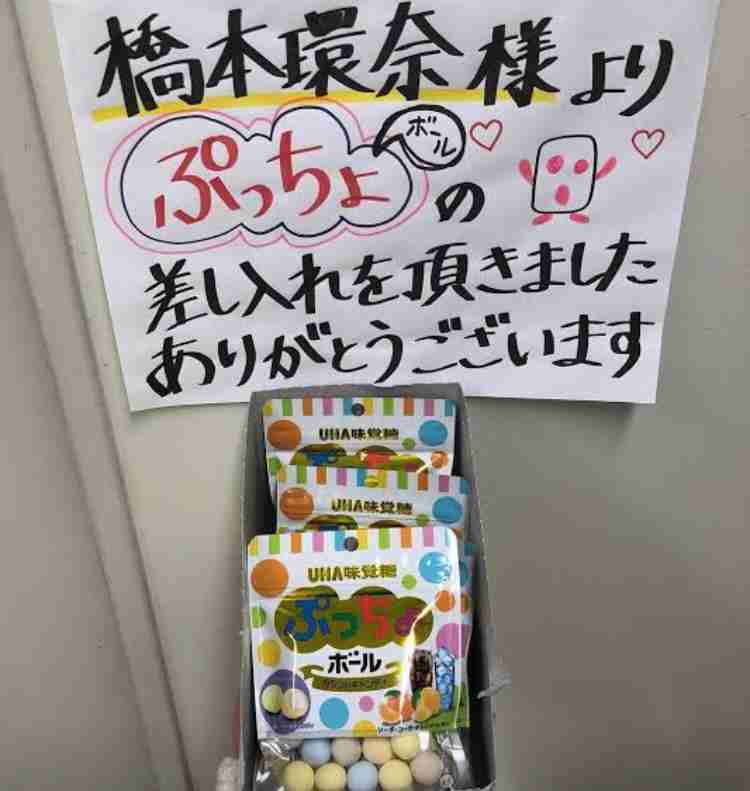 橋本環奈様より
ぷっちょボールの
差し入れを頂きました
ありがとうございます
UHA味覚糖
UHA味覚糖
UHA味覚糖
ぷっちょ
ボール